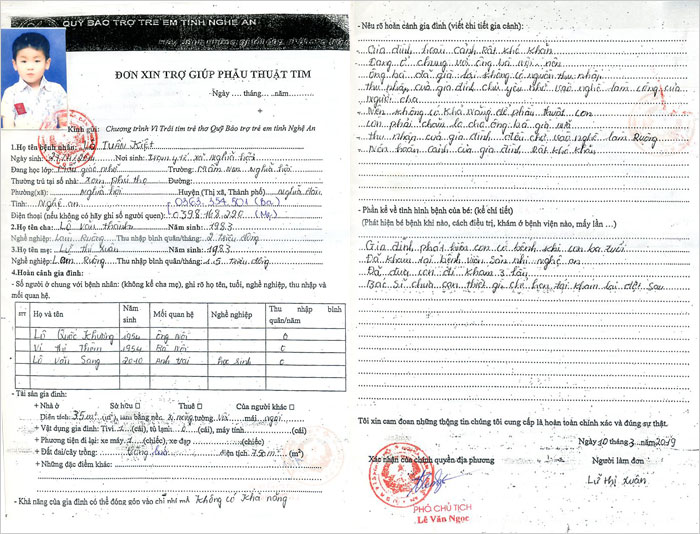 QUỸ BẢO TRỢ TRẺ EM TỈNH NGHỆ AN
ĐƠN XIN TRỢ GIÚP PHẪU THUẬT TIM
Ngày .... tháng......năm............
Kính gửi: Chương trình Vì Trái tim trẻ thơ Quỹ Bảo trợ trẻ em tỉnh Nghệ An
1.Họ tên bệnh nhân: Lô Tuấn Kiệt
Ngày sinh: Nơi sinh: Trạm y tế xã nghĩa hội
Đang học lớp: Mẫu giáo nhỡ Trường: Mầm Non nghĩa hội
Thường trú tại số nhà: xóm phú thọ Đường:
Phường(xã): nghĩa hội Huyện (Thị xã, Thành phố) nghĩa đàn
Tỉnh: Nghệ an 0363.354.501 (Ba)
Điện thoại (nếu không có hãy ghi số người quen): 0398.168.220 (Mẹ)
2.Họ tên cha: Lô văn thanh Năm sinh: 1983
Nghề nghiệp: Làm Ruộng Thu nhập bình quân/tháng: 2 triệu đồng
3.Họ tên mẹ: Lữ thị xuân Năm sinh: 1983
Nghề nghiệp: Làm Ruộng Thu nhập bình quân/tháng: 1.5 triệu đồng
4.Hoàn cảnh gia đình:
- Số người ở chung với bệnh nhân: (không kể cha mẹ), ghi rõ họ tên, tuổi, nghề nghiệp, thu nhập và
mối quan hệ.
STT Họ và tên Năm sinh Mối quan hệ Nghề nghiệp Thu nhập bình quân/năm
Lô Quốc Khương 1954 Ông Nội 0
Vi thị Thơm 1954 Bà Nội 0
Lô văn Sang 2010 Anh trai học sinh 0
- Tài sản gia đình:
+ Nhà ở Sở hữu □ Thuê □ Của người khác □
Diện tích: 35m² (m²), sàn bằng nền, tường mái ngói
+ Vật dụng gia đình: Tivi 1 (cái), tủ lạnh (cái), máy tính (cái)
+ Phương tiện đi lại: xe máy 1 (chiếc), xe đạp (chiếc)
+ Đất đai/cây trồng: trồng lúa diện tích 750m² (m²)
+ Những đặc điểm khác:
- Khả năng của gia đình có thể đóng góp vào chi phí mổ Không có khả năng
- Nêu rõ hoàn cảnh gia đình (viết chi tiết gia cảnh):
Gia đình hoàn cảnh Rất khó khăn
Đang ở chung với ông bà nội
Ông bà đã già yếu không có nguồn thu nhập
thu nhập của gia đình chủ yếu nhờ vào nghề làm công của
người cha
Nên không có khả năng để phẫu thuật con
còn phải chăm lo cho ông bà già nữa
Thu nhập của gia đình đều nhờ vào nghề làm Ruộng
Nên hoàn cảnh của gia đình Rất khó khăn
- Phần kể về tình hình bệnh của bé: (kể chi tiết)
(Phát hiện bé bệnh khi nào, cách điều trị, khám ở bệnh viện nào, mấy lần ...)
Gia đình phát hiện con có bệnh khi con ba tuổi
Đã khám tại bệnh viện sản nhi nghệ an
Đã đưa con đi khám 3 lần
Bác sĩ chưa can thiệt gì chỉ hẹn tái khám lại đợt sau
Tôi xin cam đoan những thông tin chúng tôi cung cấp là hoàn toàn chính xác và đúng sự thật.
Ngày 10 tháng 3 năm 2019
Xác nhận của chính quyền địa phương
Người làm đơn
Lữ thị xuân
PHÓ CHỦ TỊCH
Lê Văn Ngọc